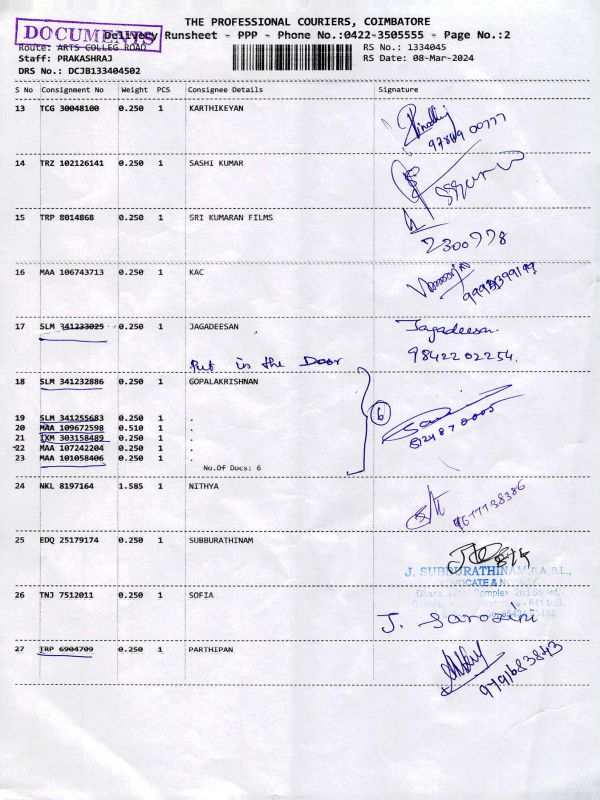 THE PROFESSIONAL COURIERS, COIMBATORE
DOCUMENTS
Delivery Runsheet - PPP - Phone No.:0422-3505555 - Page No.:2
Route: ARTS COLLEG ROAD RS No.: 1334045
Staff: PRAKASHRAJ RS Date: 08-Mar-2024
DRS No.: DCJB133404502
S No Consignment No Weight PCS Consignee Details Signature
13 TCG 30048100 0.250 1 KARTHIKEYAN
14 TRZ 102126141 0.250 1 SASHI KUMAR
15 TRP 8014868 0.250 1 SRI KUMARAN FILMS
2300778
16 MAA 106743713 0.250 1 KAC
17 SLM 341233025 0.250 1 JAGADEESAN Jagadeesan
Put in the Door 9842202254.
18 SLM 341232886 0.250 1 GOPALAKRISHNAN
6
19 SLM 341255683 0.250 1 .
20 MAA 109672598 0.510 1 .
21 TXM 303158489 0.250 1 .
22 MAA 107242204 0.250 1 .
23 MAA 101058406 0.250 1 .
No.Of Docs: 6
24 NKL 8197164 1.585 1 NITHYA
25 EDQ 25179174 0.250 1 SUBBURATHINAM
J. SUBBURATHINAM B.A.B.L.,
ADVOCATE & NOTARY
26 TNJ 7512011 0.250 1 SOFIA
J. Sarozini
27 TRP 6904709 0.250 1 PARTHIPAN
9791683843